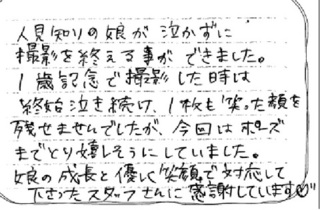 人見知りの娘が泣かずに
撮影を終える事ができました。
1歳記念で撮影した時は
終始泣き続け、1枚も笑った顔を
残せませんでしたが、今回はポーズ
までとり嬉しそうにしていました。
娘の成長と優しく笑顔で対応して
下さったスタッフさんに感謝しています♡"